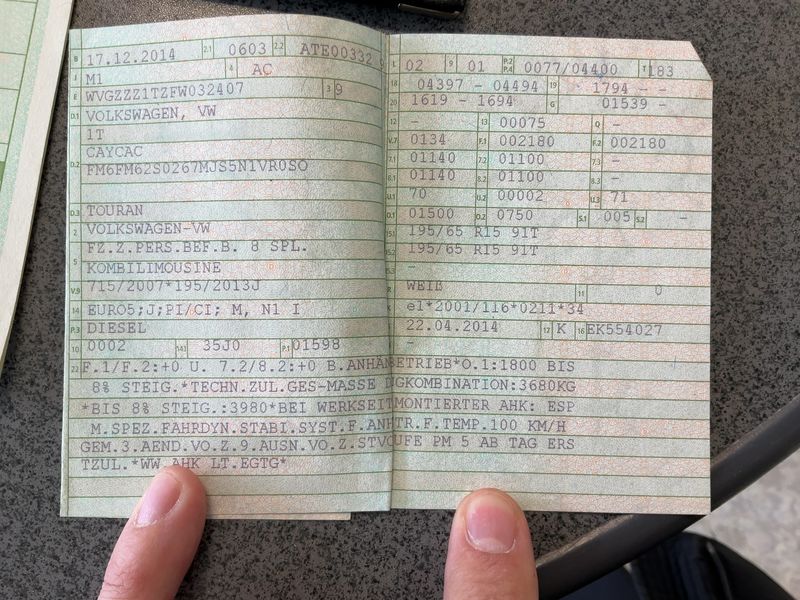 B 17.12.2014 2.1 0603 2.2 ATE00332 9
J M1 4 AC
E WVGZZZ1TZFW032407 3 9
D.1 VOLKSWAGEN, VW
1T
D.2 CAYCAC
FM6FM62S0267MJS5N1VR0SO
D.3 TOURAN
2 VOLKSWAGEN-VW
5 FZ.Z.PERS.BEF.B. 8 SPL.
KOMBILIMOUSINE
V.9 715/2007*195/2013J
14 EURO5;J;PI/CI; M, N1 I
P.3 DIESEL
10 0002 14.1 35J0 P.1 01598
L 02 9 01 P.2 P.4 0077/04400 T 183
18 04397 - 04494 19 1794 - -
20 1619 - 1694 G 01539 -
12 - 13 00075 Q -
V.7 0134 F.1 002180 F.2 002180
7.1 01140 7.2 01100 7.3 -
8.1 01140 8.2 01100 8.3 -
U.1 70 U.2 00002 U.3 71
O.1 01500 O.2 0750 S.1 005 S.2 -
15.1 195/65 R15 91T
15.2 195/65 R15 91T
15.3 -
R WEIß 11 0
K e1*2001/116*0211*34
6 22.04.2014 17 K 16 EK554027
-
22 F.1/F.2:+0 U. 7.2/8.2:+0 B.ANHÄNGEBETRIEB*O.1:1800 BIS
8% STEIG.*TECHN.ZUL.GES-MASSE DGKOMBINATION:3680KG
*BIS 8% STEIG.:3980*BEI WERKSEITMONTIERTER AHK: ESP
M.SPEZ.FAHRDYN.STABI.SYST.F.ANHTR.F.TEMP.100 KM/H
GEM.3.AEND.VO.Z.9.AUSN.VO.Z.STVOUFE PM 5 AB TAG ERS
TZUL.*WW.AHK LT.EGTG*